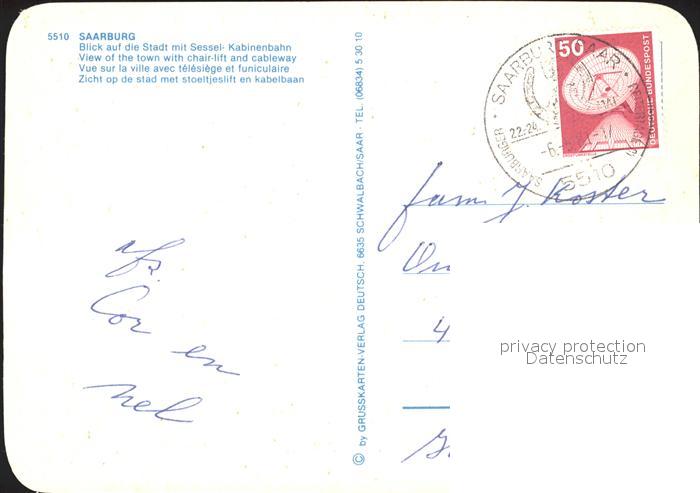 5510 SAARBURG
Blick auf die Stadt mit Sessel- Kabinenbahn
View of the town with chair-lift and cableway
Vue sur la ville avec télésiège et funiculaire
Zicht op de stad met stoeltjeslift en kabelbaan
© by GRUSSKARTEN-VERLAG DEUTSCH, 6635 SCHWALBACH/SAAR - TEL. (06834) 5 30 10
50
DEUTSCHE BUNDESPOST
SAARBURG SAAR
SAARBURGER
5510
fam. J. Koster
On
4
privacy protection
Datenschutz
afz.
Cor en
Nel